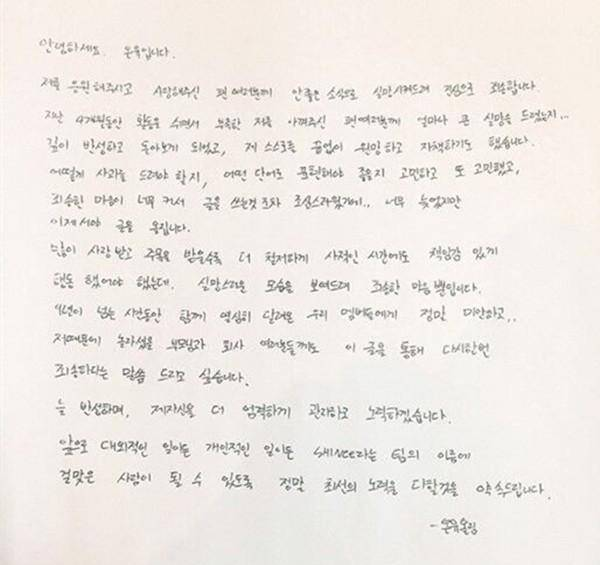 안녕하세요. 온유입니다.
저를 응원해주시고 사랑해주신 팬 여러분께 안좋은 소식으로 실망시켜드려 진심으로 죄송합니다.
지난 4개월동안 활동을 쉬면서 부족한 저를 아껴주신 팬여러분께 얼마나 큰 실망을 드렸는지...
깊이 반성하고 돌아보게 되었고, 제 스스로를 끝없이 원망하고 자책하기도 했습니다.
어떻게 사과를 드려야 할지, 어떤 단어로 표현해야 좋을지 고민하고 또 고민했고,
죄송한 마음이 너무 커서 글을 쓰는것 조차 조심스러웠기에.. 너무 늦었지만
이제서야 글을 올립니다.
많이 사랑받고 주목을 받을수록 더 철저하게 사적인 시간에도 책임감 있게
행동 했어야 했는데. 실망스러운 모습을 보여드려 죄송한 마음 뿐입니다.
9년이 넘는 시간동안 함께 열심히 달려온 우리 멤버들에게 정말 미안하고..
저때문에 놀라셨을 부모님과 회사 여러분들께도 이 글을 통해 다시한번
죄송하다는 말씀 드리고 싶습니다.
늘 반성하며, 제자신을 더 엄격하게 관리하고 노력하겠습니다.
앞으로 대외적인 일이든 개인적인 일이든 SHINee라는 팀의 이름에
걸맞은 사람이 될 수 있도록 정말 최선의 노력을 다할것을 약속드립니다.
-온유올림